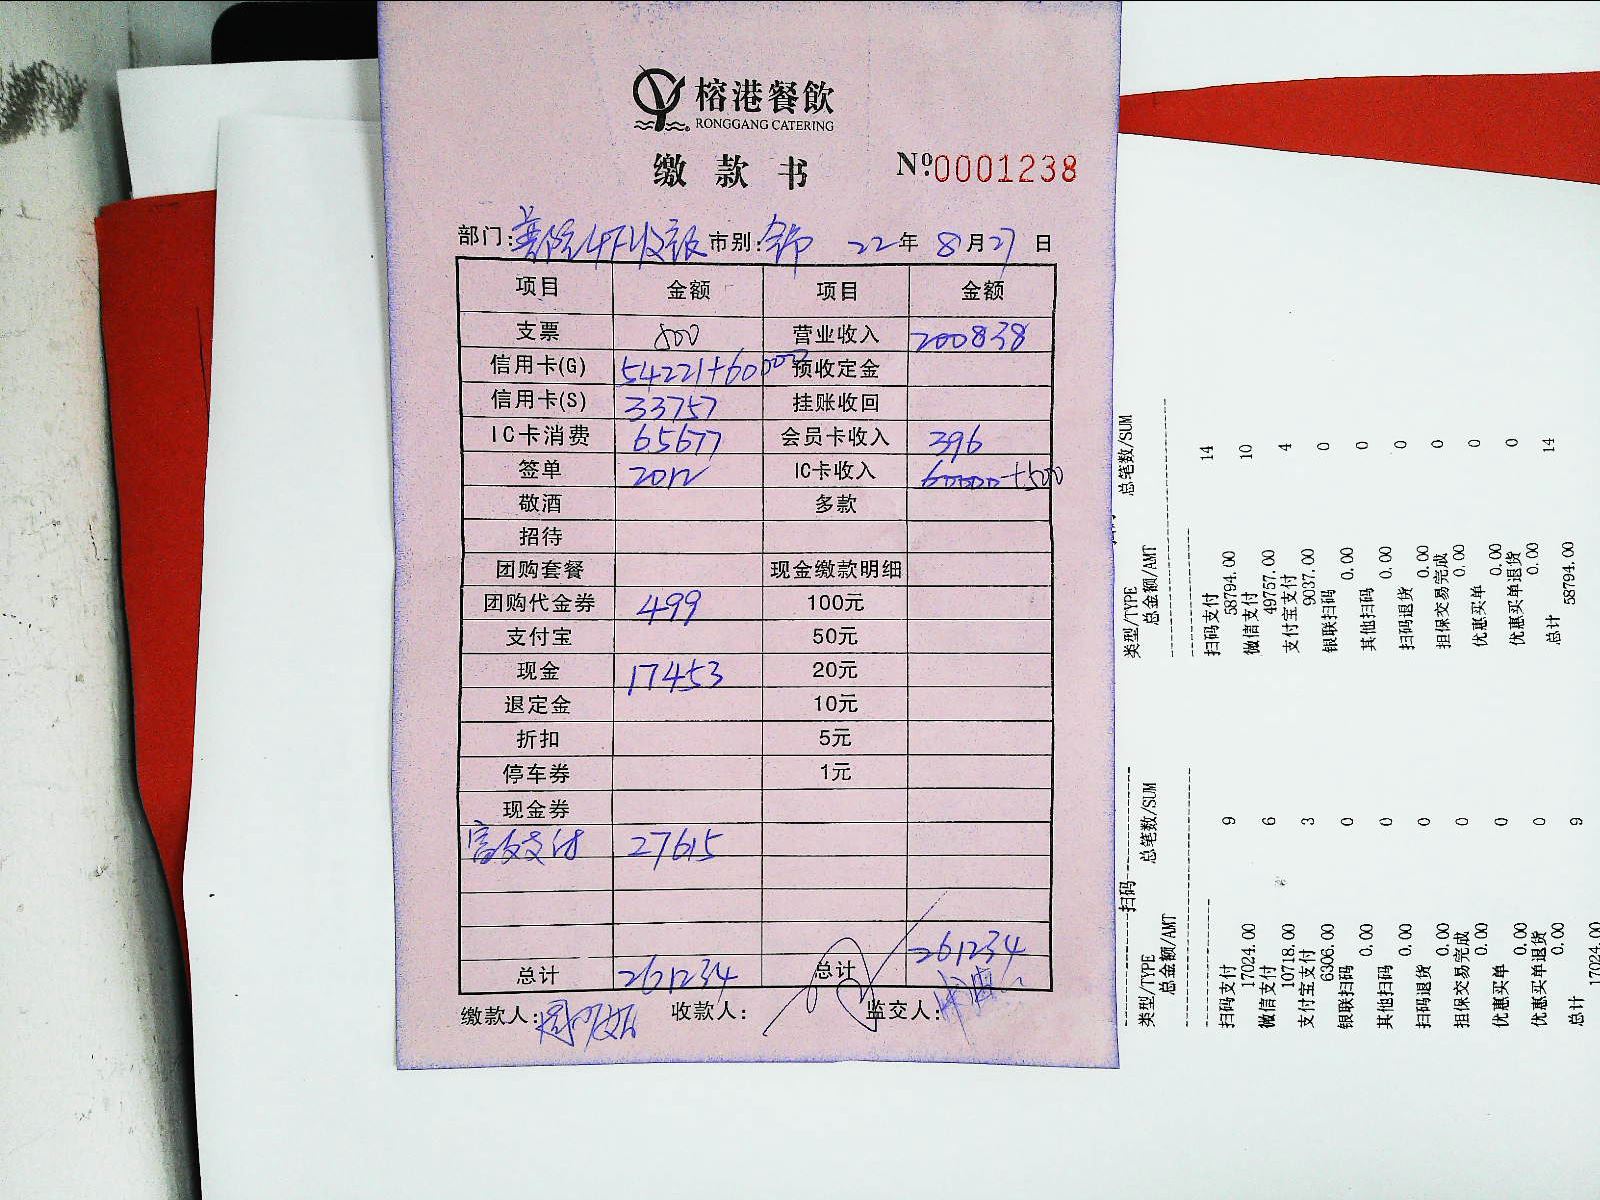 榕港餐飲
RONGGANG CATERING
缴款书 Nº:0001238
部门: 市别: 22年 8月27日
项目 金额 项目 金额
支票 800 营业收入 200838
信用卡(G) 54221+60000 预收定金
信用卡(S) 33757 挂账收回
IC卡消费 65677 会员卡收入 396
签单 2012 IC卡收入 60000+500
敬酒 多款
招待
团购套餐 现金缴款明细
团购代金券 499 100元
支付宝 50元
现金 17453 20元
退定金 10元
折扣 5元
停车券 1元
现金券
支付 27615
总计 261234 总计 261234
缴款人: 收款人: 监交人:
类型/TYPE 总笔数/SUM
总金额/AMT
扫码支付 14
58794.00
微信支付 10
49757.00
支付宝支付 4
9037.00
银联扫码 0
0.00
其他扫码 0
0.00
扫码退货 0
0.00
担保交易完成 0
0.00
优惠买单 0
0.00
优惠买单退货 0
0.00
总计 14
58794.00
扫码
类型/TYPE 总笔数/SUM
总金额/AMT
扫码支付 9
17024.00
微信支付 6
10718.00
支付宝支付 3
6306.00
银联扫码 0
0.00
其他扫码 0
0.00
扫码退货 0
0.00
担保交易完成 0
0.00
优惠买单 0
0.00
优惠买单退货 0
0.00
总计 9
17024.00